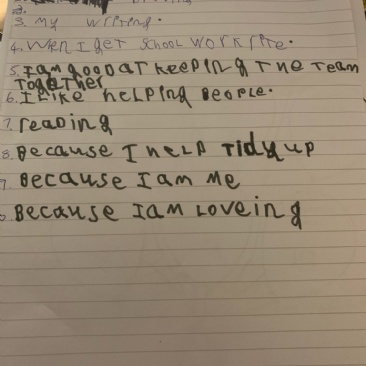 2.
3. My writing.
4. Wen I get School work rite.
5. I am good at keeping the team
Together
6. I like helping people.
7. reading
8. Because I help tidy up
9. Because I am me
Because I am loveing